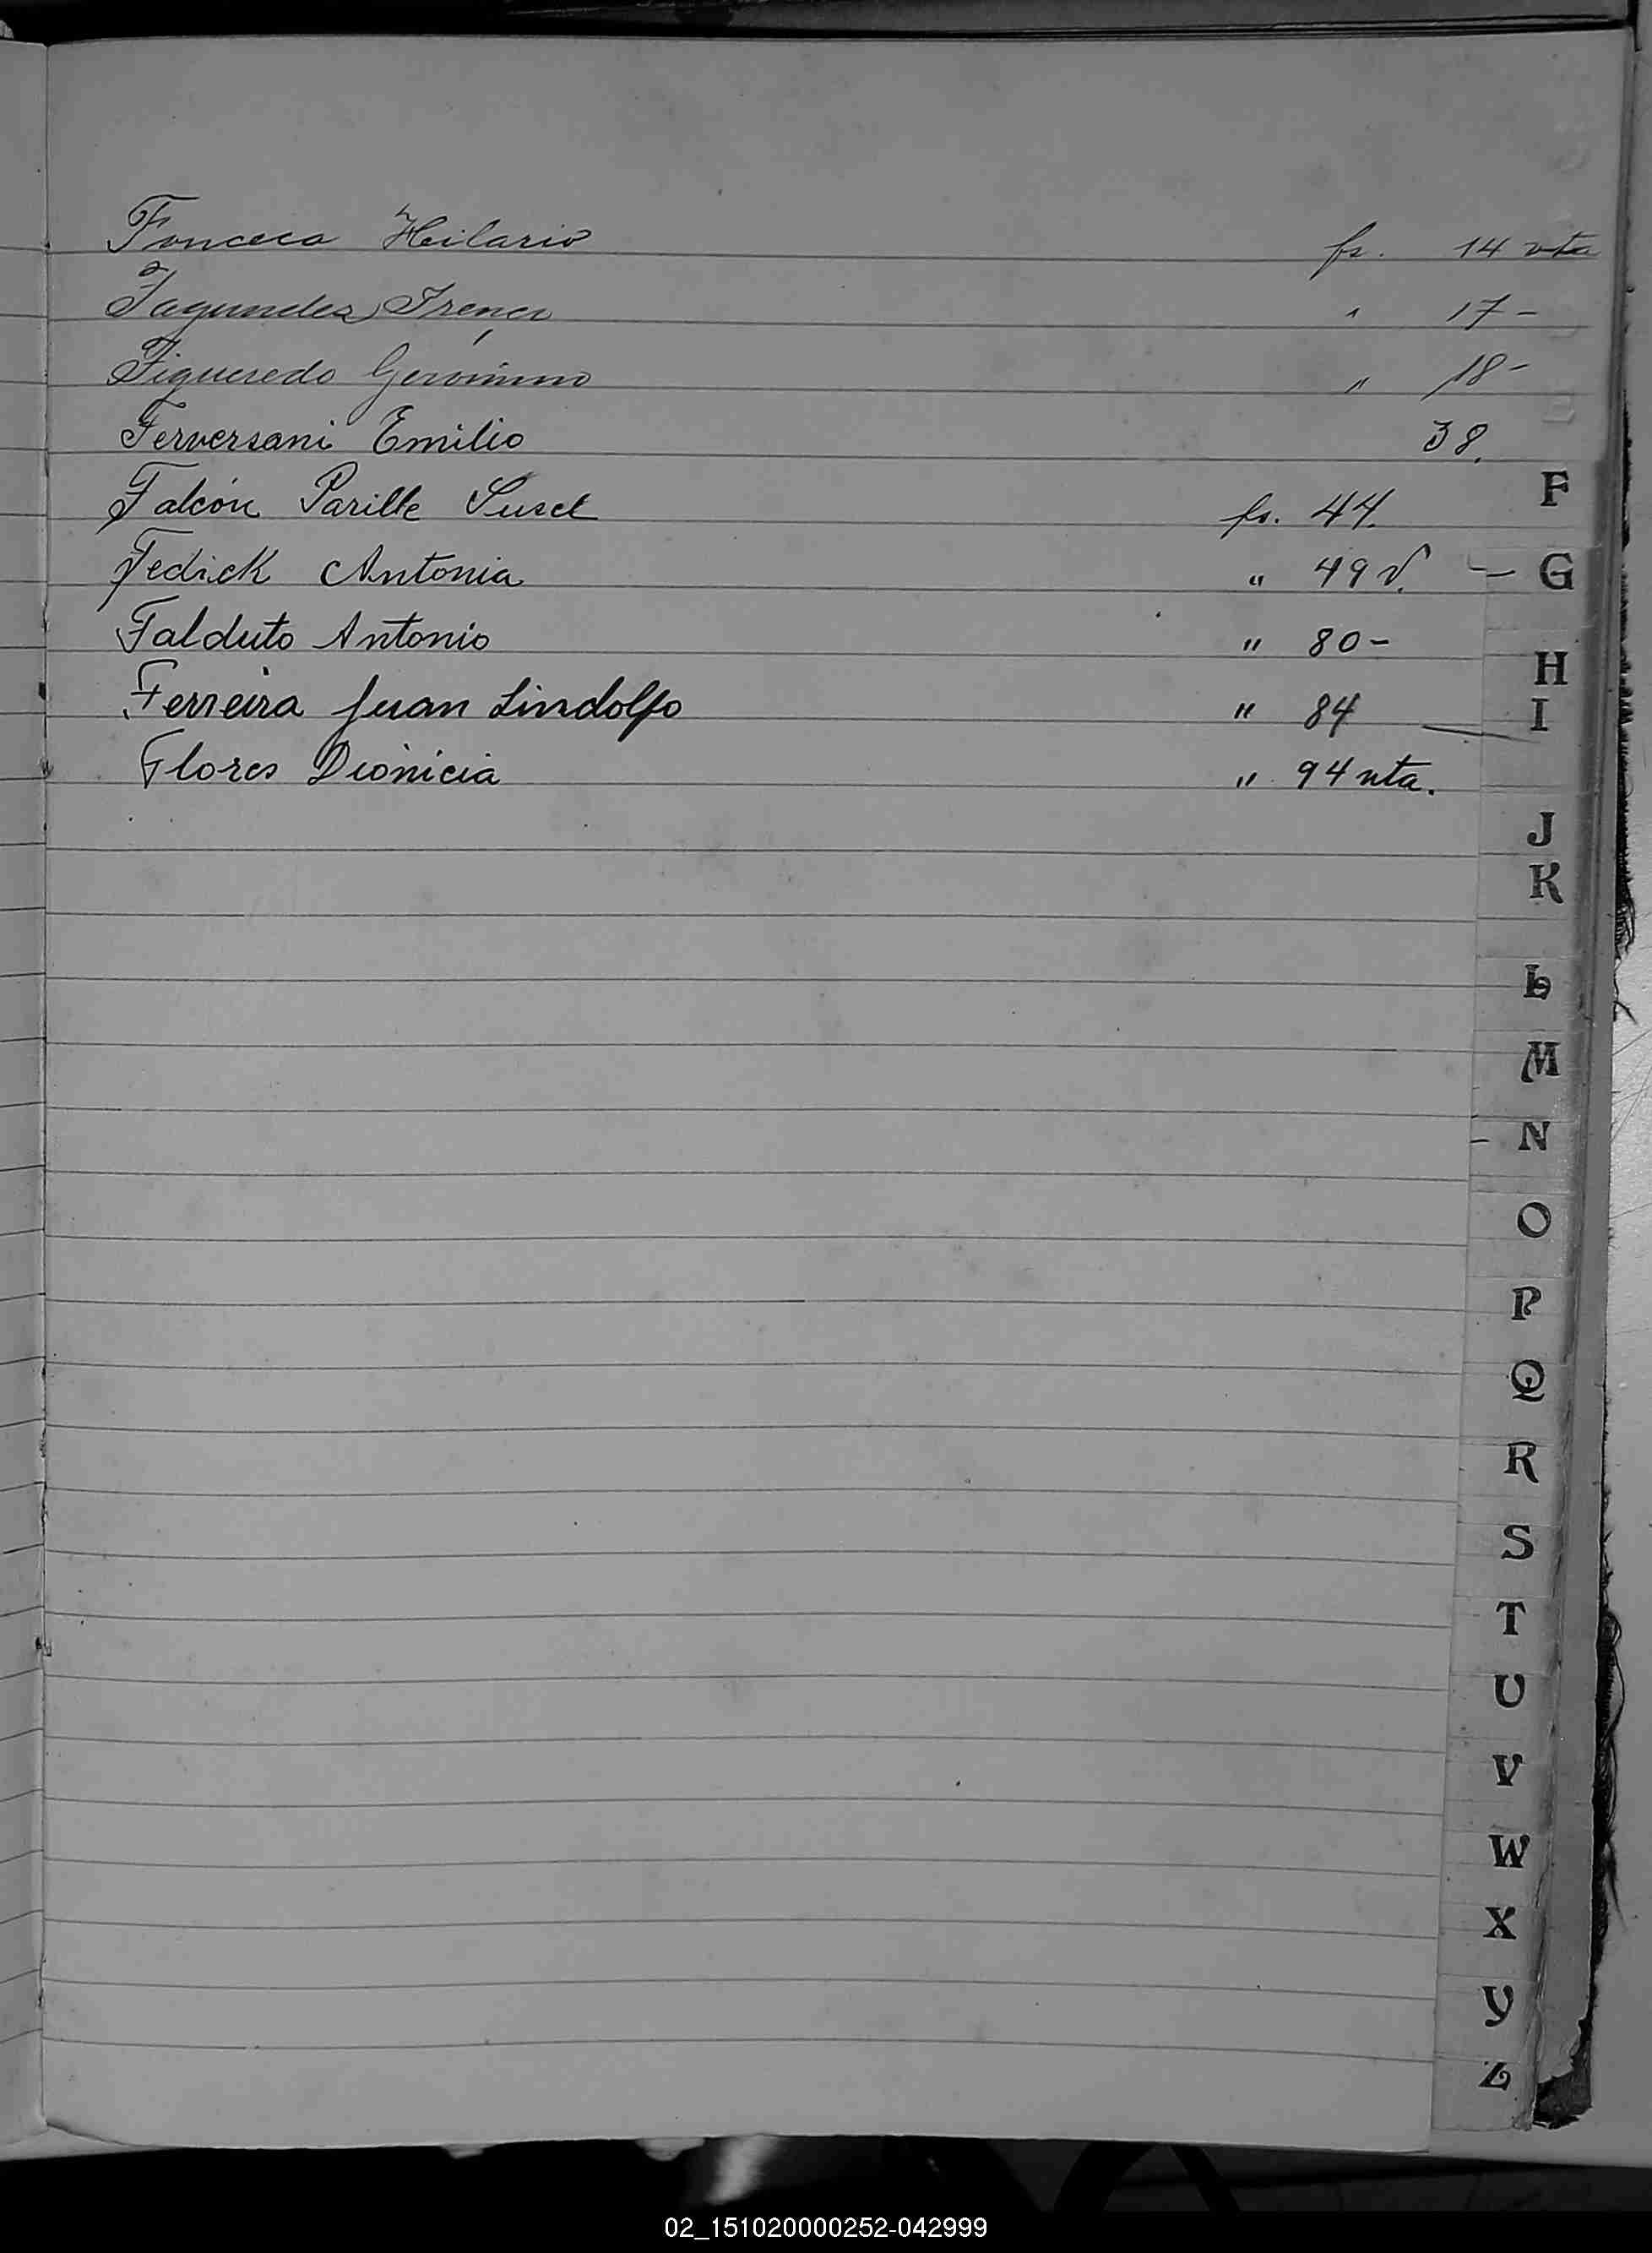 Fonceca Hilario fs. 14 vta
Fagundez Irenea " 17-
Figueredo Gerónimo " 18-
Ferversani Emilio 38.
Falcón Parille Susel fs. 44.
Fedick Antonia " 49 v.
Falduto Antonio " 80-
Ferreira Juan Lindolfo " 84
Flores Dionicia " 94 vta.
F
G
H
I
J
K
L
M
N
O
P
Q
R
S
T
U
V
W
X
Y
Z
02_151020000252-042999